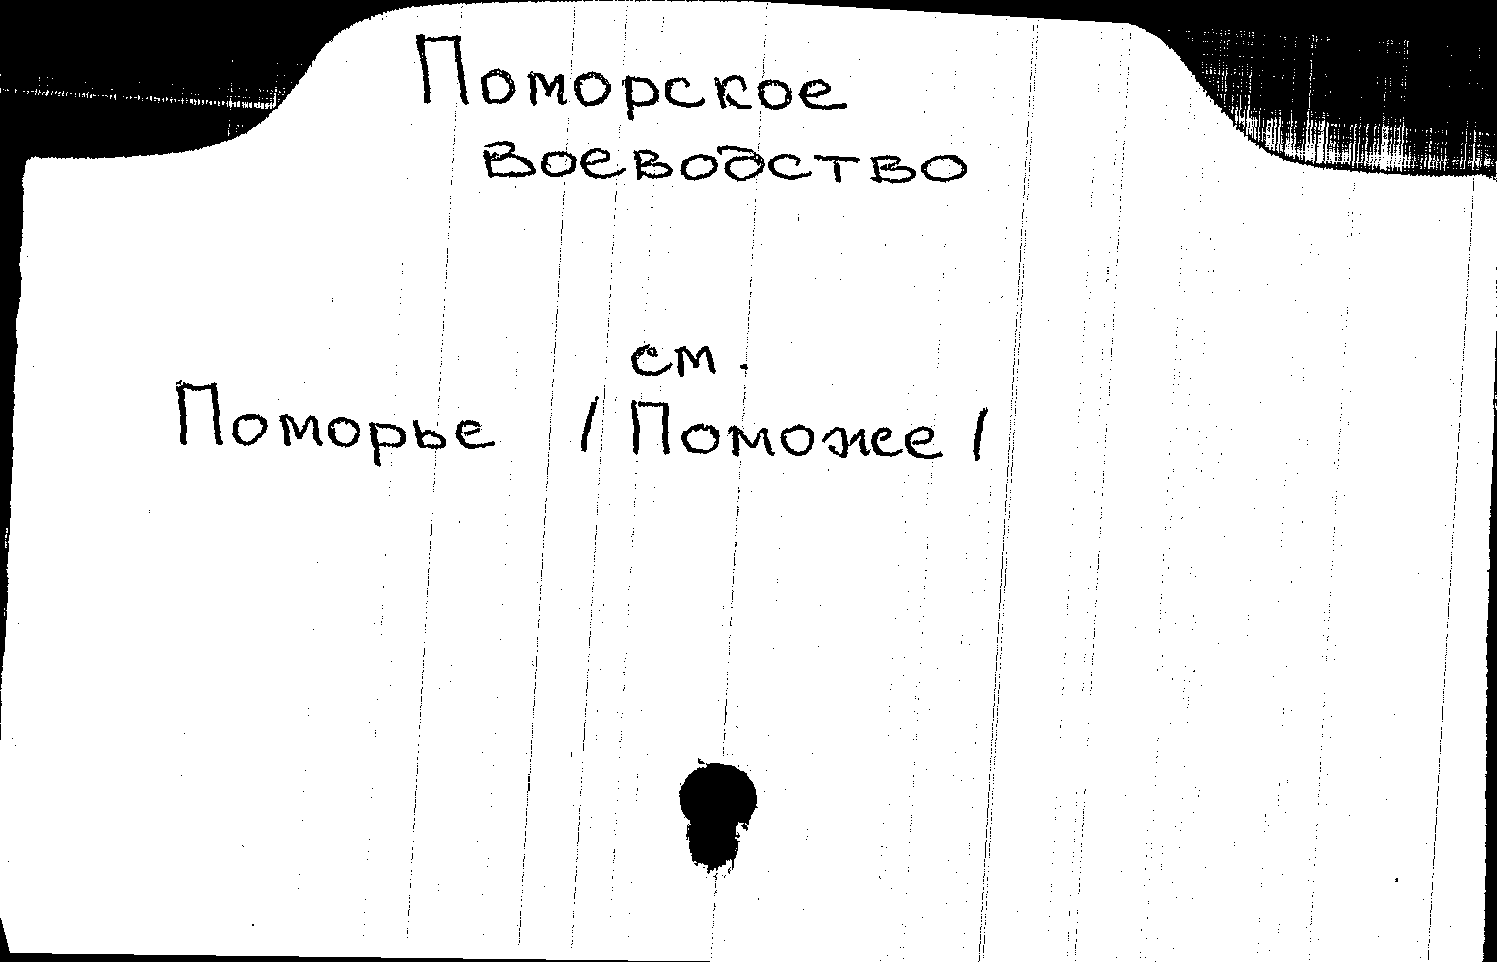 Поморское
воеводство
см.
Поморье /Поможее/